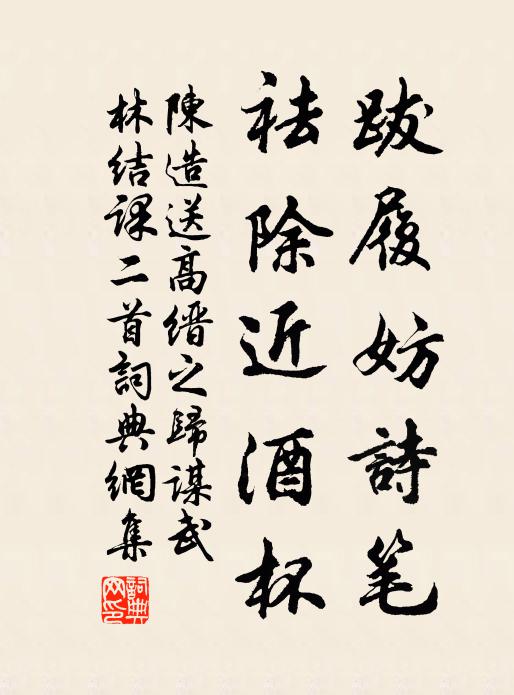 跋履妨詩笔
祛除近酒杯
陳造送高縉之歸謀武
林結課二首詞典網集
詞典網印